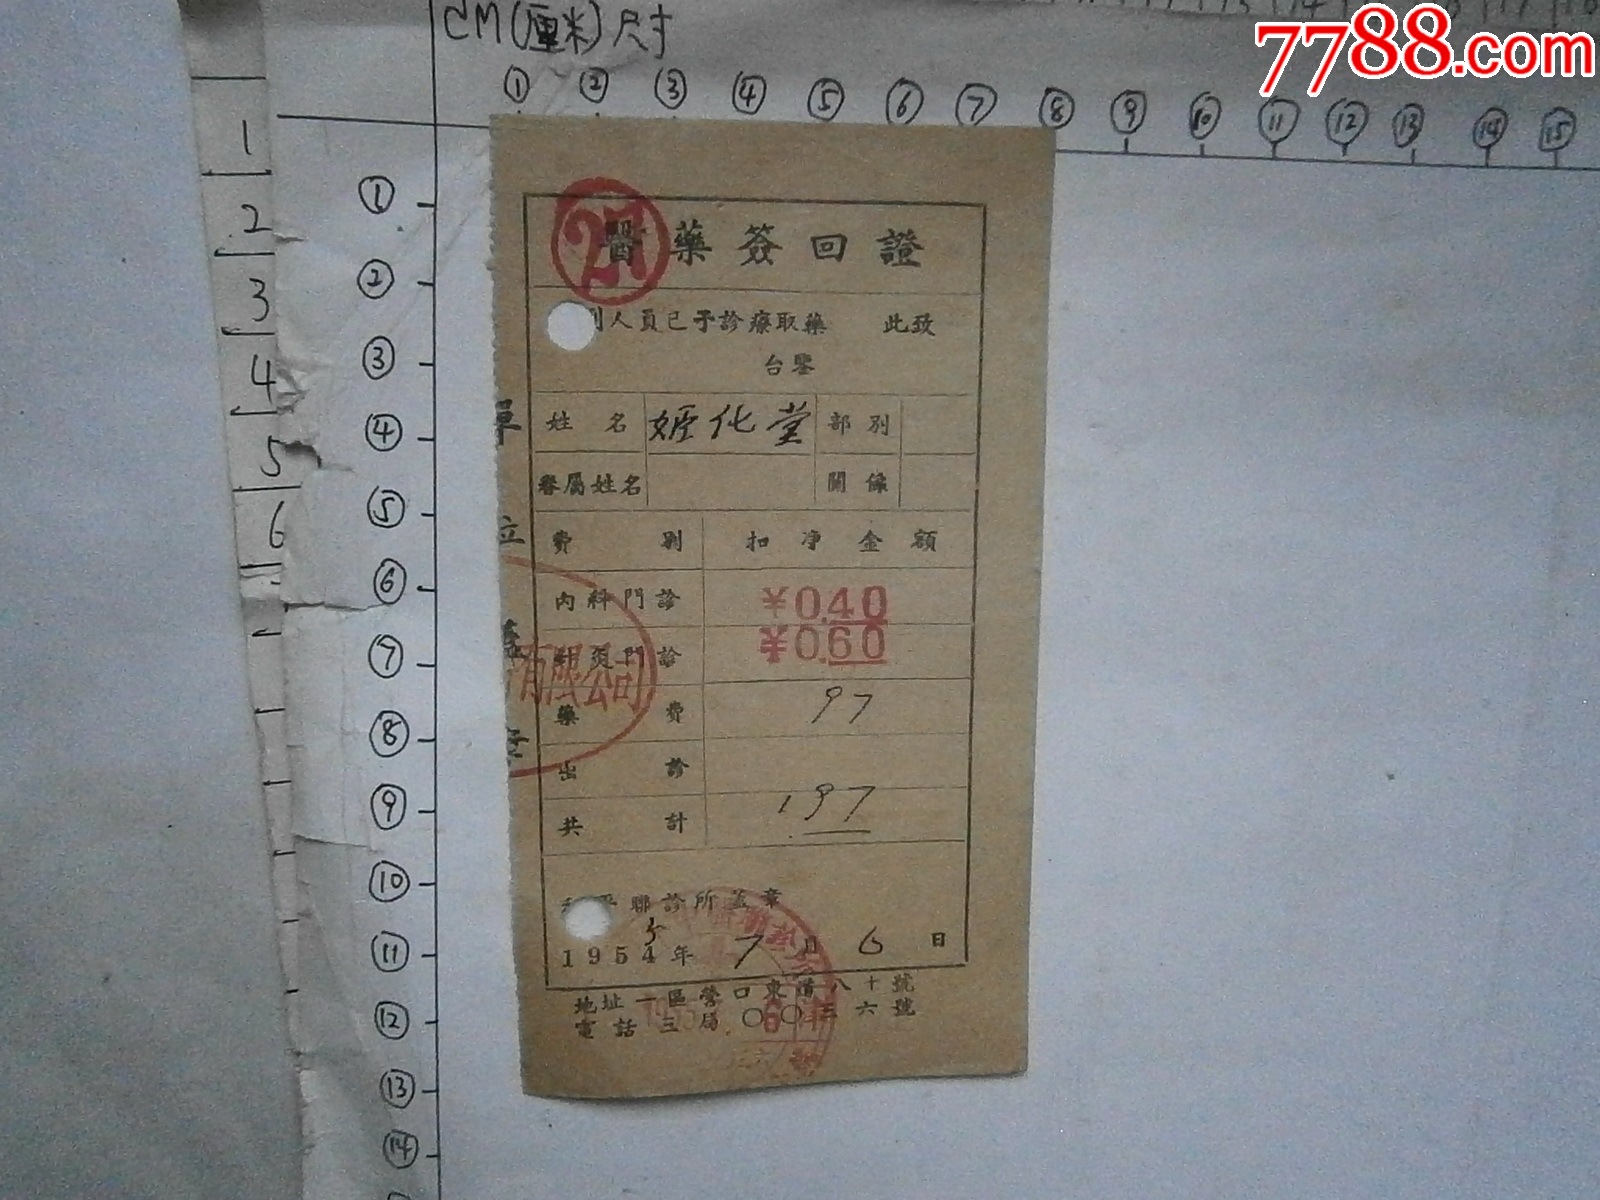 CM(厘米)尺寸
7788.com
① ② ③ ④ ⑤ ⑥ ⑦ ⑧ ⑨ ⑩ ⑪ ⑫ ⑬ ⑭ ⑮
1
2
3
4
5
6
①
②
③
④
⑤
⑥
⑦
⑧
⑨
⑩
⑪
⑫
⑬
⑭
27
醫藥簽回證
別人員已予診療取藥 此致
台鑒
姓名 姬化堂 部別
眷屬姓名 關係
費別 扣净金額
內科門診 ¥0.40
針灸門診 ¥0.60
有限公司
藥費 97
出診
共計 1.97
聯診所蓋章
1954年 5 7月6日
地址一區營口東道八十號
電話三局〇〇三六號
單位